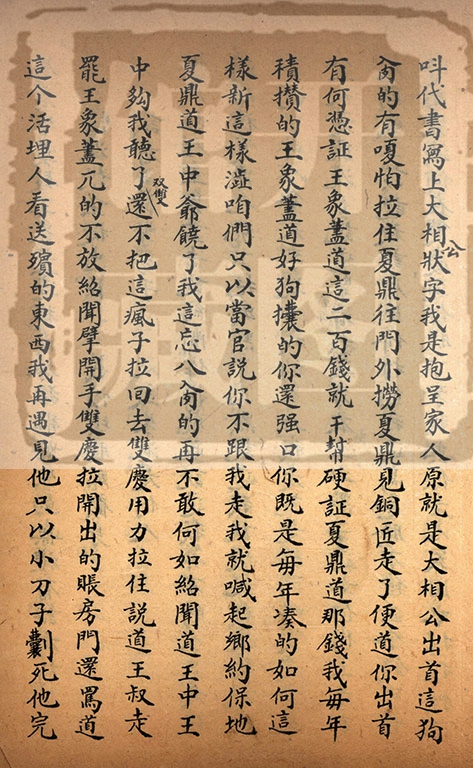 呌代書寫上大相公狀字我是抱呈家人原就是大相公出首這狗
肏的有嗄怕拉住夏鼎往門外撈夏鼎見銅匠走了便道你出首
有何憑証王象藎道這二百錢就干幇硬証夏鼎道那錢我每年
積攢的王象藎道好狗攮的你還强口你既是每年凑的如何這
樣新這樣澁咱們只以當官説你不跟我走我就喊起鄉約保地
夏鼎道王中爺饒了我這忘八肏的再不敢何如紹聞道王中王
中夠我聽了還不把這瘋子拉回去雙慶用力拉住説道王叔走
罷王象藎兀的不放紹聞擘開手雙慶拉開出的賬房門還罵道
這个活埋人看送殯的東西我再遇見他只以小刀子劙死他完
双衝